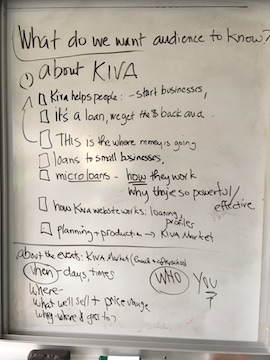 What do we want audience to know?
① about KIVA
Kiva helps people: - start businesses,
it's a loan, we get the $ back and
THIS is the where money is going
loans to small businesses,
microloans - how they work
why they're so powerful/
effective
how Kiva website works: loaning,
profiles
planning + production → Kiva Market
about the events: KIVA MARKET (lunch + afterschool
when - days, times
WHO
YOU
?
Where -
What we'll sell + price range
Why - where $ goes to?